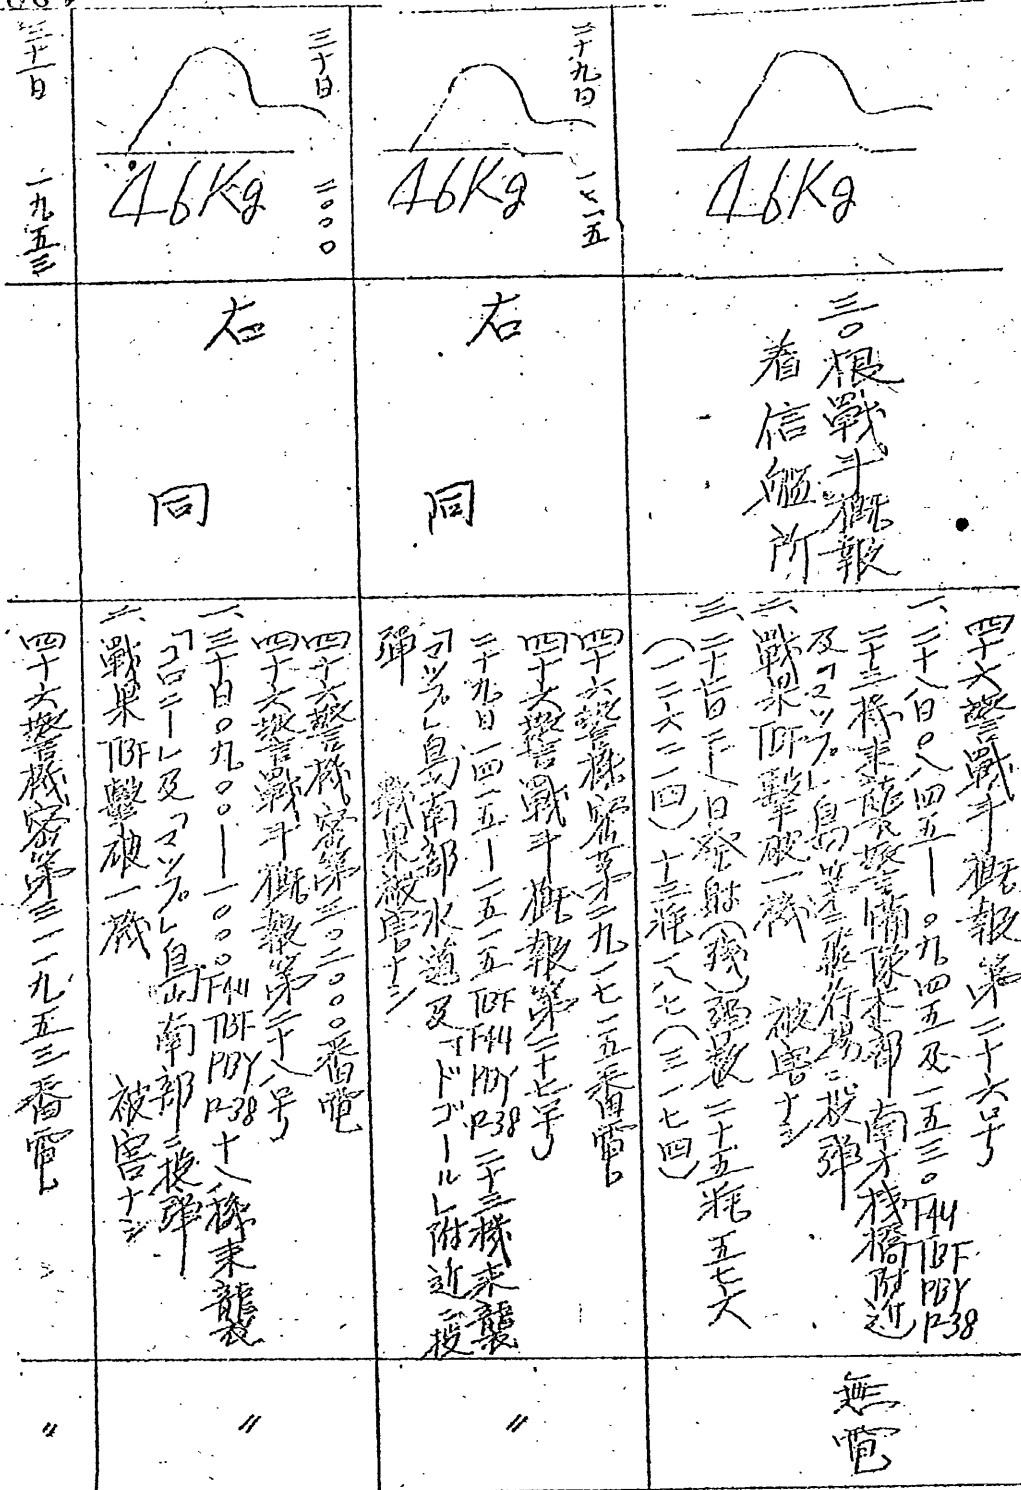 46Kg
三〇根戰斗概報
着信艦所
四十六警戰斗概報第二十六号
一、二十八日〇八四五—〇九四五及一五三〇 F4U TBF PBY P-38
二十三機来襲警備隊本部南方桟橋附近
及「マップ」島第二飛行場ニ投弾
二、戰果TBF撃破一機 被害ナシ
三、二十七日二十八日発射(残)弾数 二十五粍 五七六
(一二六二一四)十三粍一八七(三一七四)
無電
二十九日 一七一五
46Kg
右 同
四十六警機密第二九一七一五番電
四十六警戰斗概報第二十七号
二十九日一四一五—一五一五 TBF F4U PBY P-38 二十三機来襲
「マップ」島南部水道及「ドゴール」附近ニ投
彈 戰果被害ナシ
〃
三十日 二〇〇〇
46Kg
右 同
四十六警機密第三〇二〇〇〇番電
四十六警戰斗概報第二十八号
一、三十日〇九〇〇—一〇〇〇 F4U TBF PBY P-38 十八機来襲
「コロニー」及「マップ」島南部ニ投弾
二、戰果TBF撃破一機 被害ナシ
〃
三十一日 一九五三
四十六警機密第三一一九五三番電
〃